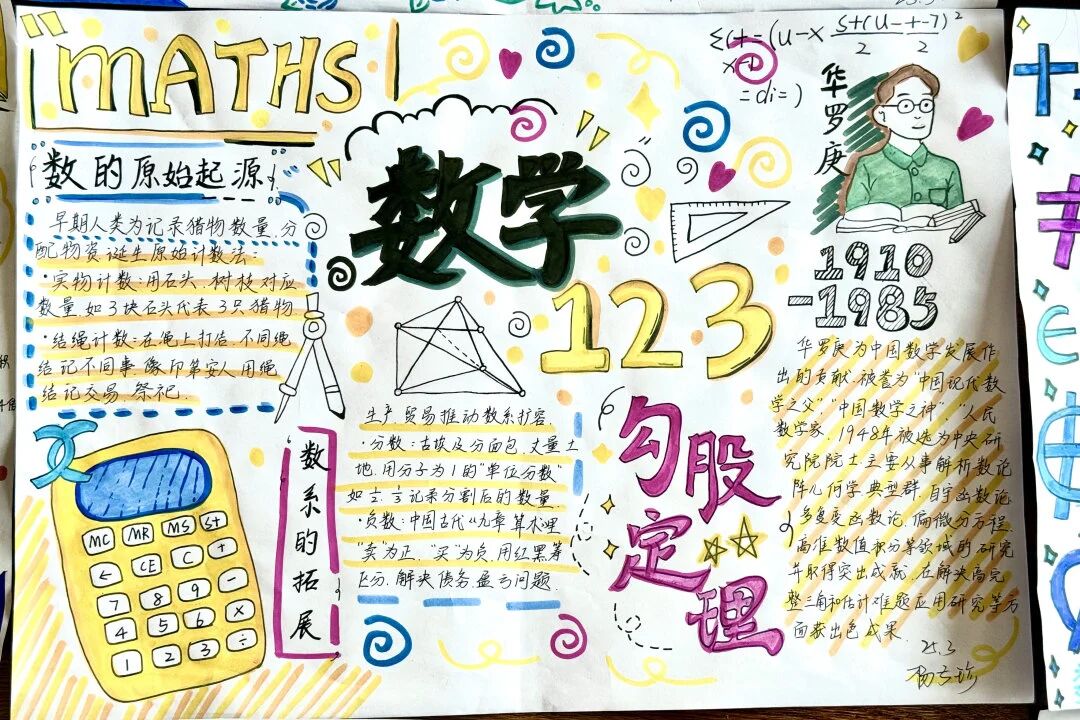 MATHS
数的原始起源
早期人类为记录猎物数量、分
配物资,诞生原始计数法:
·实物计数:用石头、树枝对应
数量,如3块石头代表3只猎物
·结绳计数:在绳上打结,不同绳
结记不同事,像印第安人用绳
结记交易、祭祀.
MC MR MS S+
← CE C +
7 8 9 -
4 5 6 ×
1 2 3 ÷
数学
123
数系的拓展
生产、贸易推动数系扩容
·分数:古埃及分面包、丈量土
地,用分子为1的"单位分数"
记录分割后的数量
·负数:中国古代《九章算术》里
"卖"为正,"买"为负,用红黑筹
区分,解决债务、盈亏问题.
勾股定理
华罗庚
1910
-1985
华罗庚为中国数学发展作
出的贡献,被誉为"中国现代数
学之父""中国数学之神""人民
数学家.1948年被选为中央研
究院院士.主要从事解析数论
阵几何学、典型群、自守函数论
多复变函数论、偏微分方程、
高维数值积分等领域的研究
并取得突出成就,在解决高完
整三角和估计难题应用研究等方
面获出色成果.
25.3